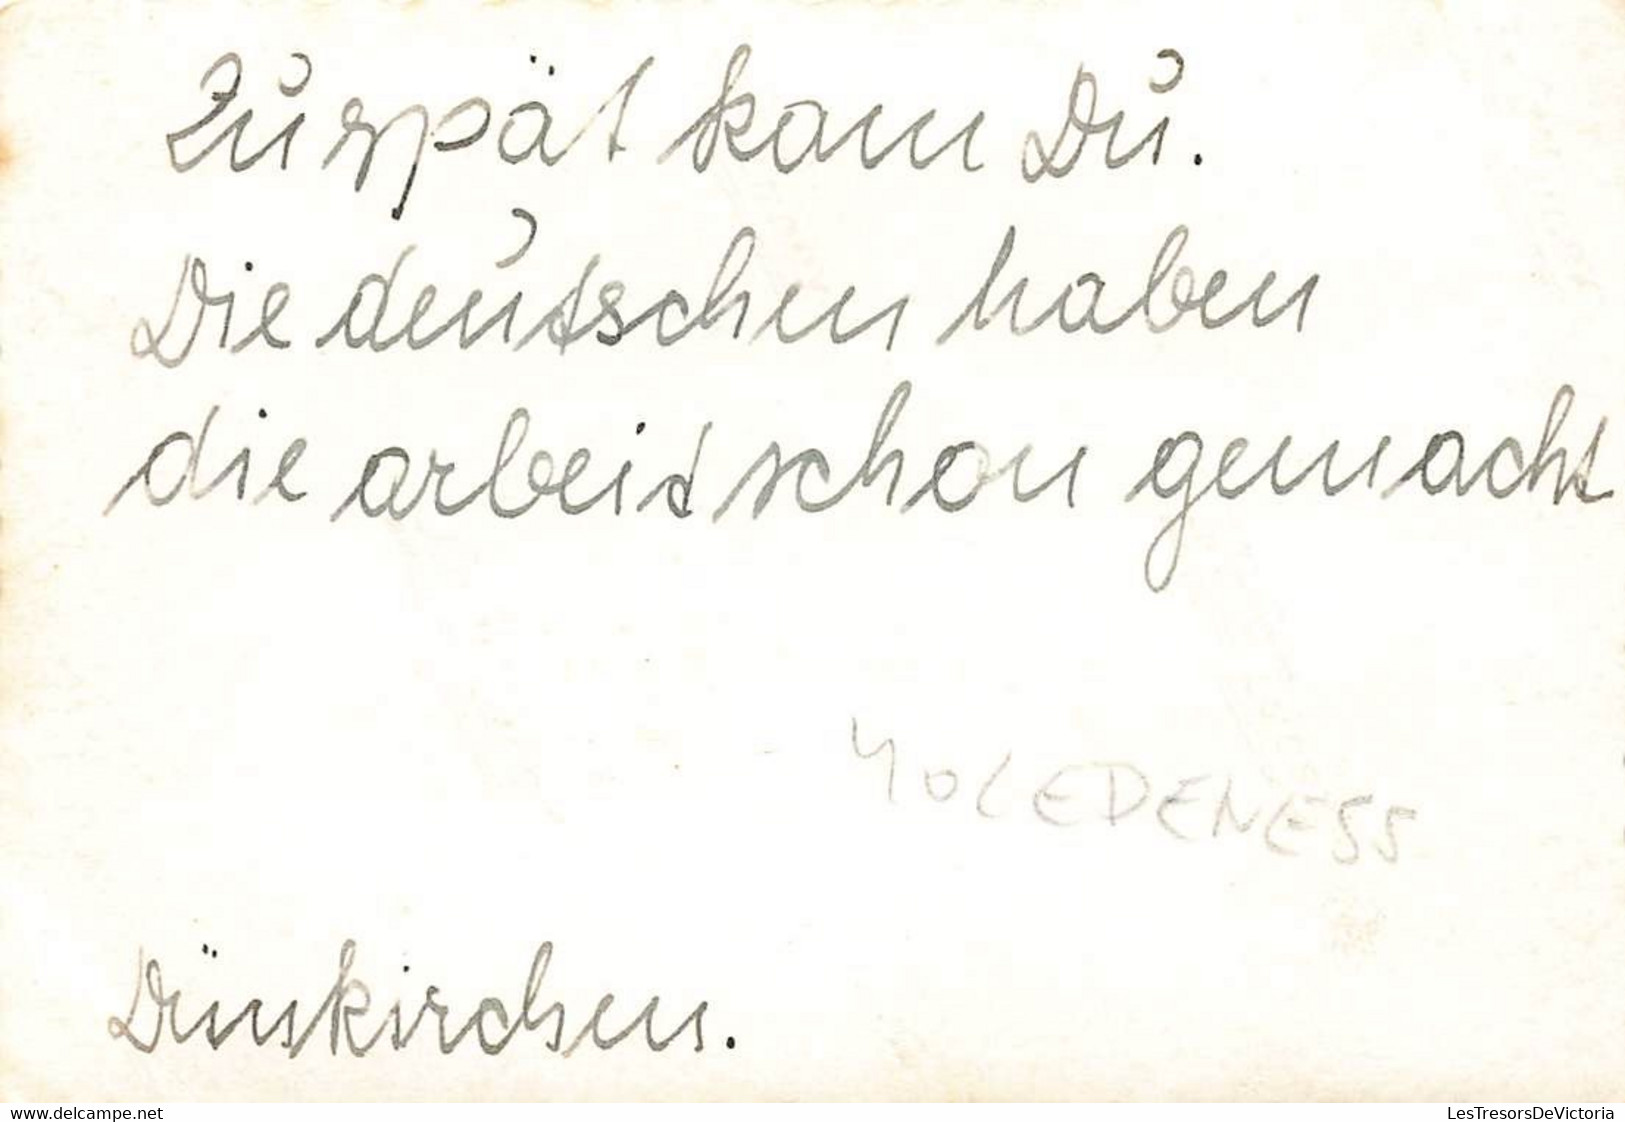 Zu spät kam Du.
Die deutschen haben
die arbeit schon gemacht
Dünkirchen.
www.delcampe.net
LesTresorsDeVictoria